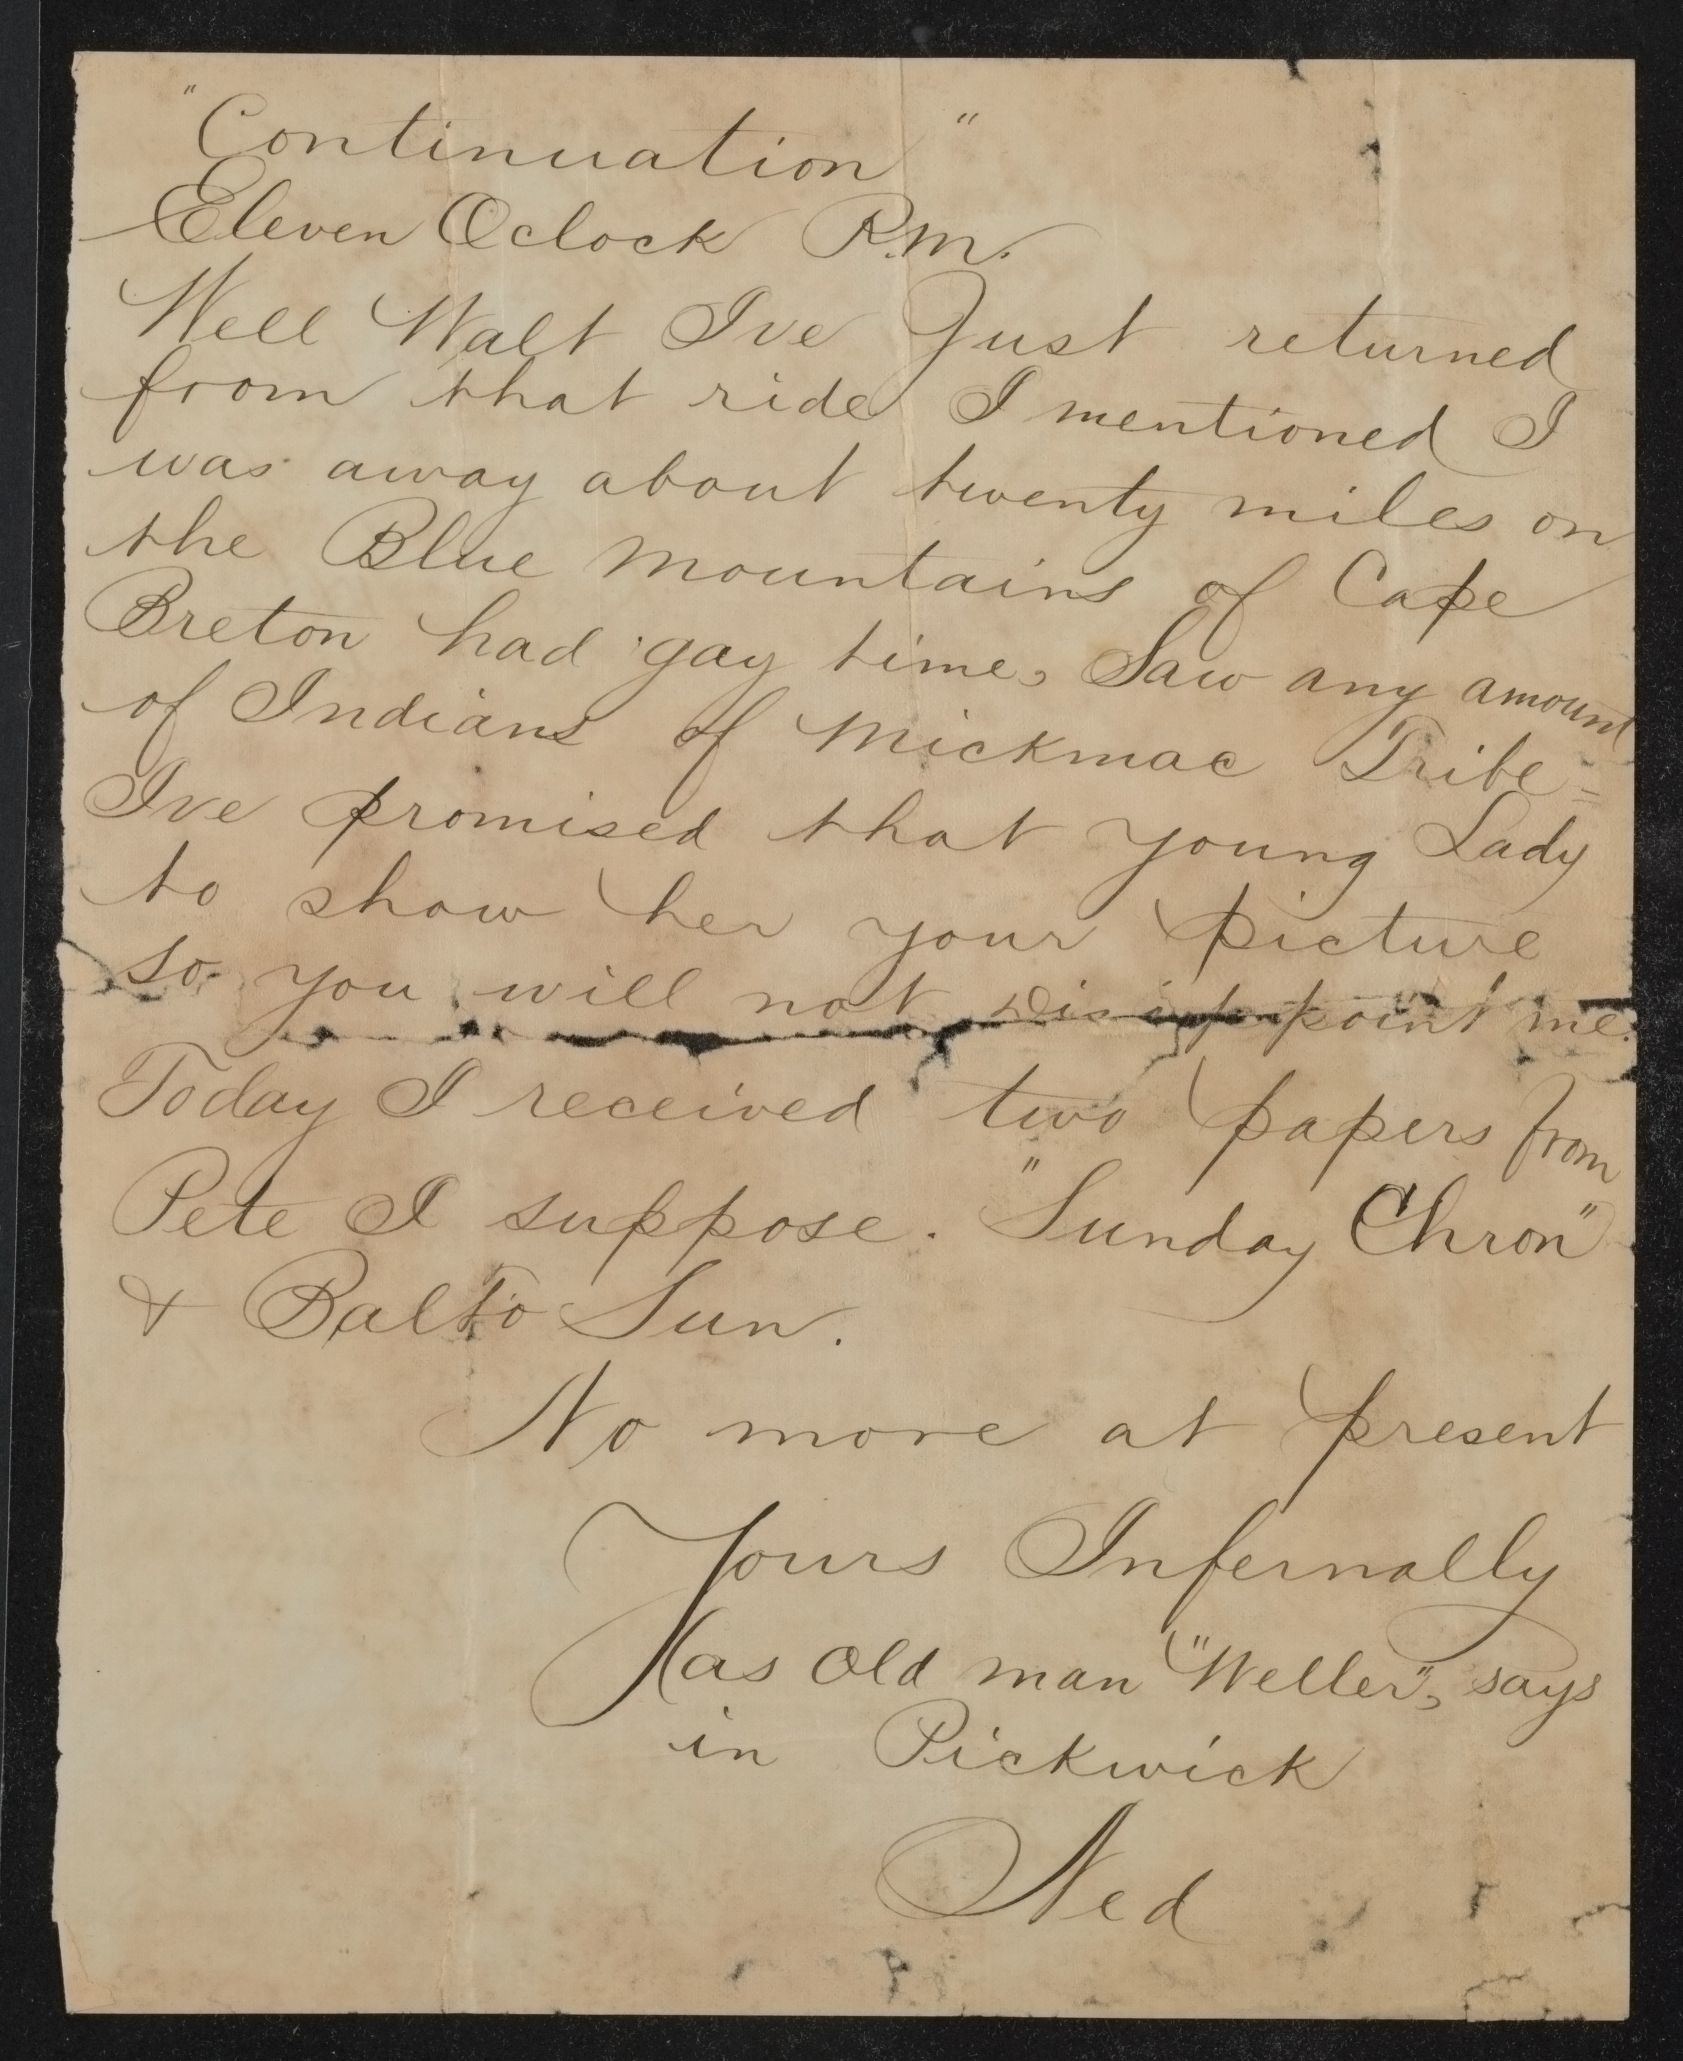 "Continuation"
Eleven Oclock P.M.
Well Walt Ive Just returned
from that ride I mentioned I
was away about twenty miles on
the Blue Mountains of Cape
Breton had gay time, Saw any amount
of Indians of Mickmac Tribe =
Ive promised that young Lady
to show her your picture
so you will not disappoint me.
Today I received two papers from
Pete I suppose. "Sunday Chron"
& Balto Sun.
No more at present
Yours Infernally
as Old man "Weller", says
in Pickwick
Ned